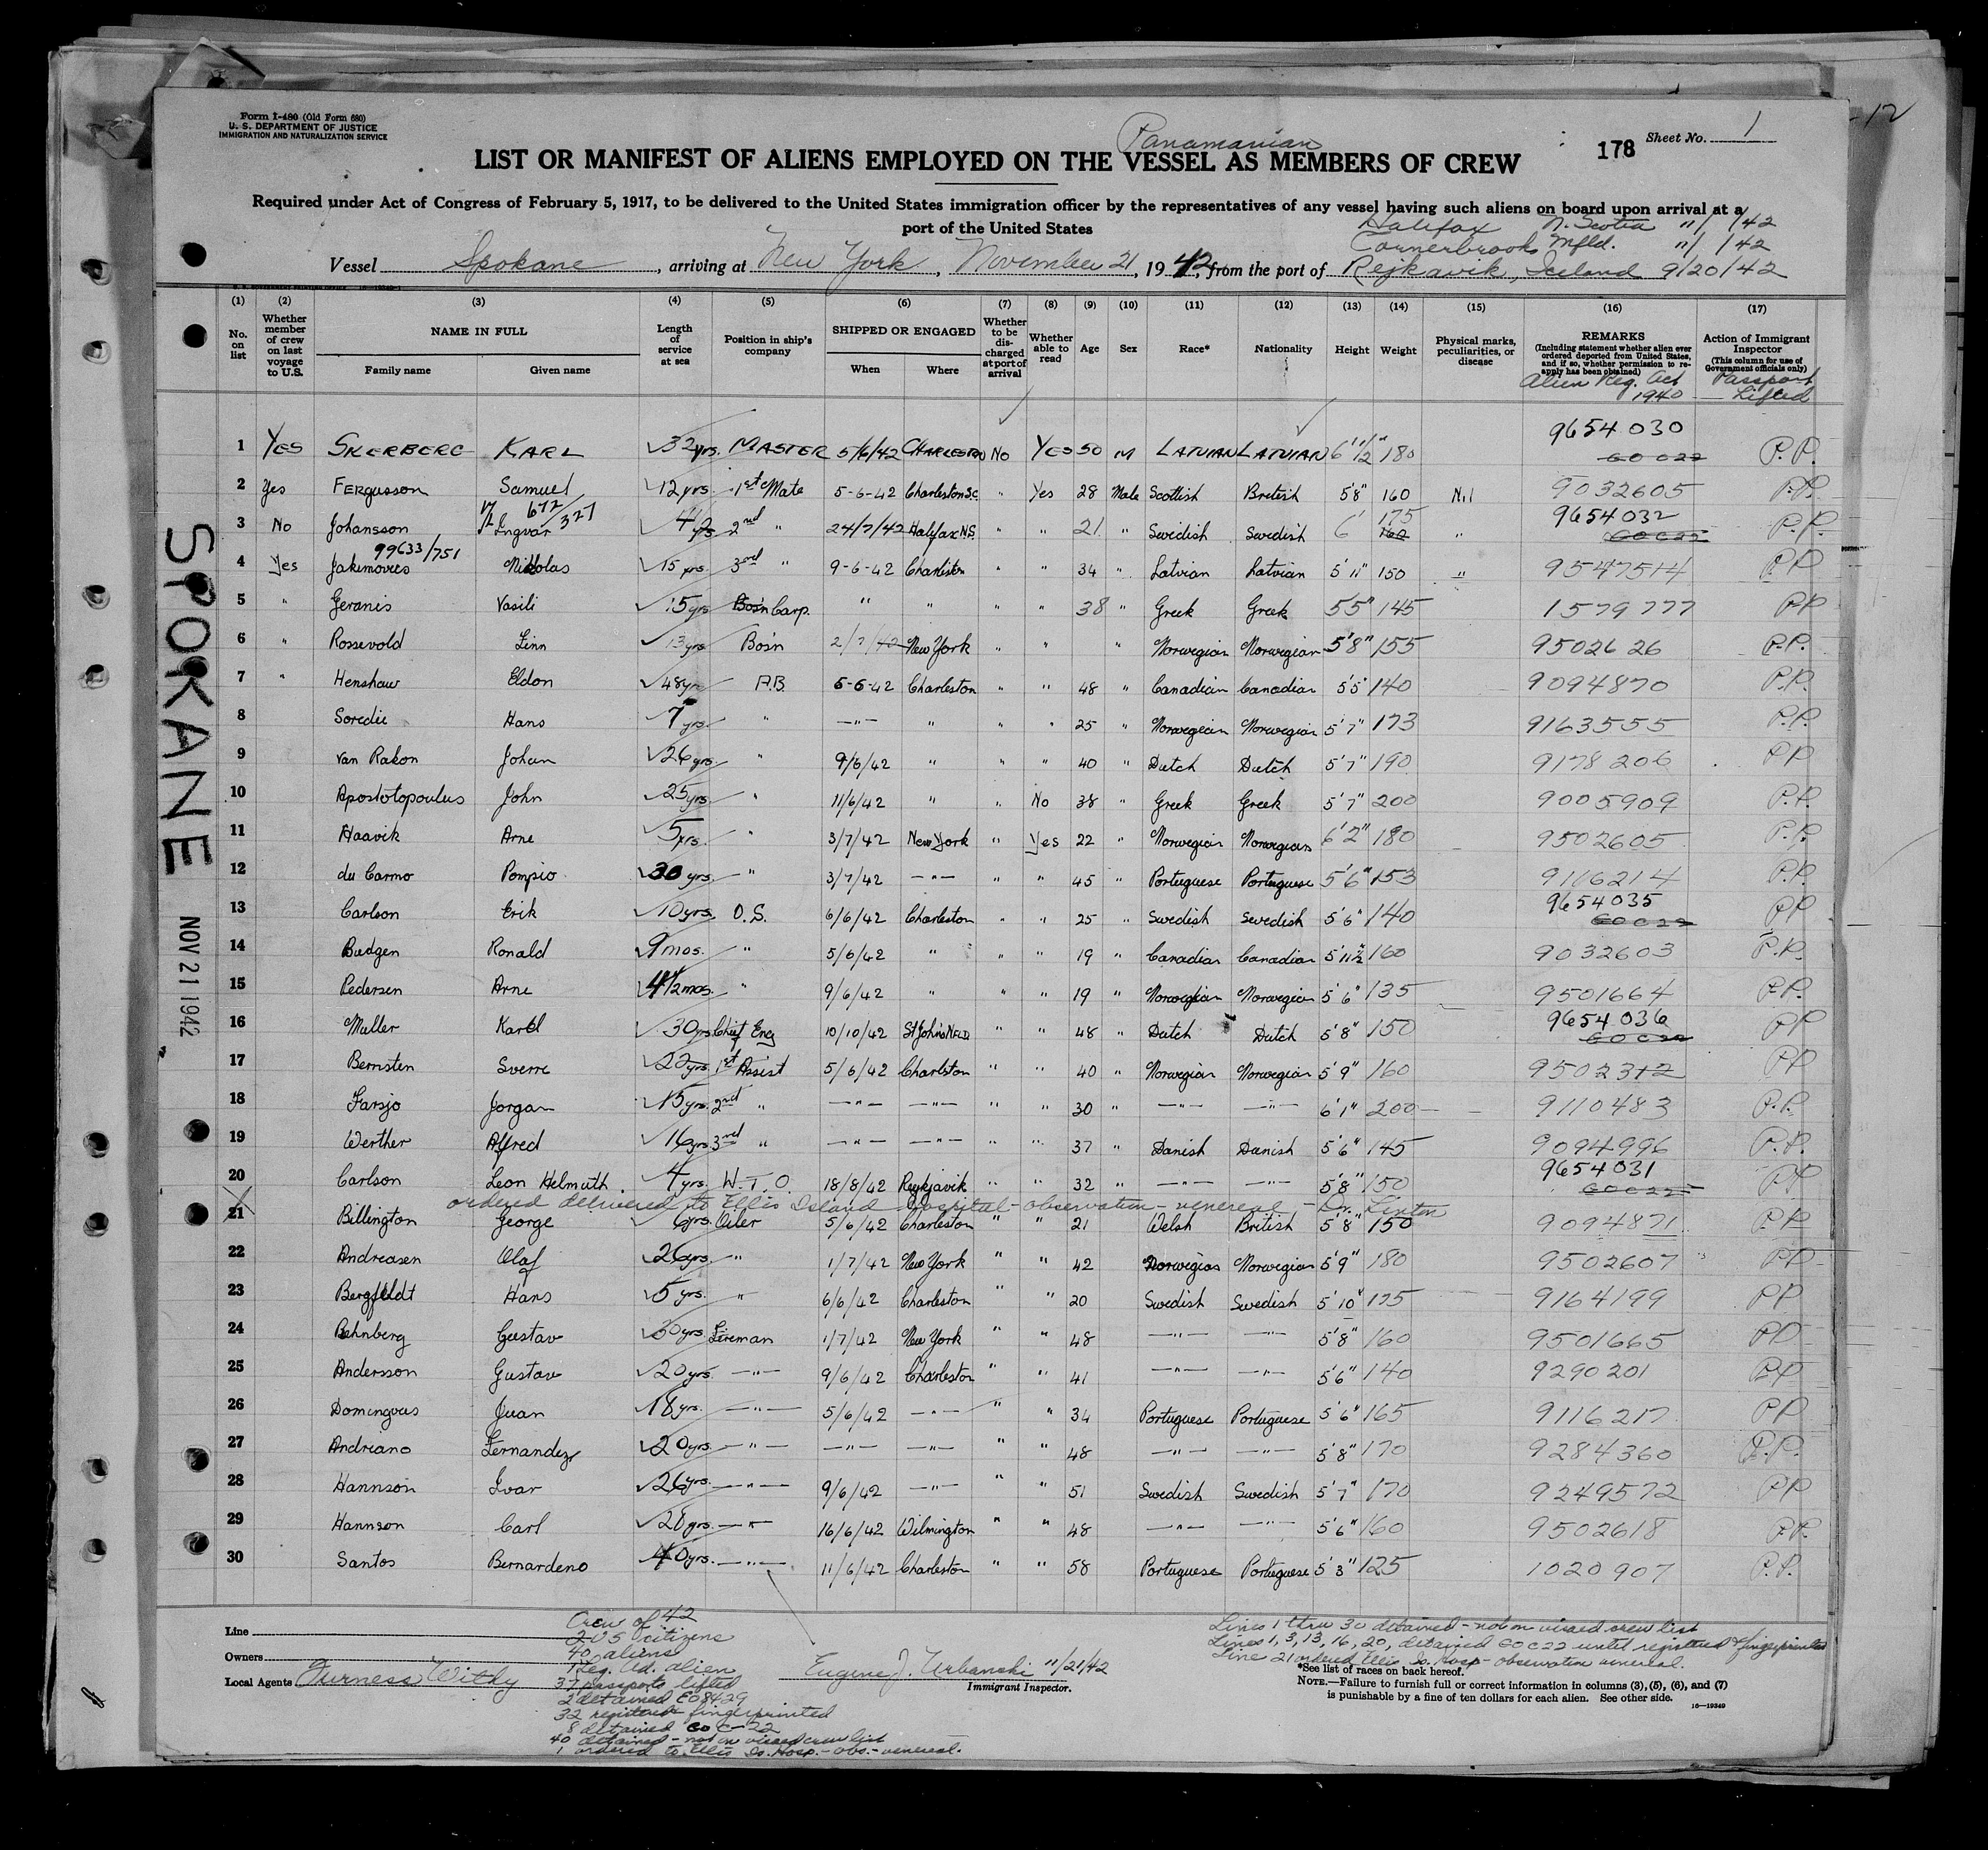 12
Form I-480 (Old Form 680)
U. S. DEPARTMENT OF JUSTICE
IMMIGRATION AND NATURALIZATION SERVICE
Panamanian
178 Sheet No. 1
LIST OR MANIFEST OF ALIENS EMPLOYED ON THE VESSEL AS MEMBERS OF CREW
Required under Act of Congress of February 5, 1917, to be delivered to the United States immigration officer by the representatives of any vessel having such aliens on board upon arrival at a
port of the United States
Halifax N. Scotia 11/ /42
Cornerbrook Nfld. 11/ /42
Vessel Spokane, arriving at New York, November 21, 1942, from the port of Rejkavik, Iceland 9/20/42
(1) (2) (3) (4) (5) (6) (7) (8) (9) (10) (11) (12) (13) (14) (15) (16) (17)
No. on list Whether member of crew on last voyage to U.S. NAME IN FULL Family name Given name Length of service at sea Position in ship's company SHIPPED OR ENGAGED When Where Whether to be discharged at port of arrival Whether able to read Age Sex Race* Nationality Height Weight Physical marks, peculiarities, or disease REMARKS (Including statement whether alien ever ordered deported from United States, and if so, whether permission to reapply has been obtained) Action of Immigrant Inspector (This column for use of Government officials only)
Alien Reg. Act 1940 Passport Lifted
9654030
1 Yes SKERBERG KARL 32 yrs. MASTER 5/6/42 CHARLESTON No Yes 50 M LATVIAN LATVIAN 6' 1/2" 180 P.P.
2 Yes Fergusson Samuel 12 yrs. 1st Mate 5-6-42 Charleston S.C. " Yes 28 Male Scottish British 5'8" 160 Nil 9032605 P.P.
672/327
3 No Johansson Ingvar 4 yrs 2nd " 24/7/42 Halifax N.S. " " 21 " Swedish Swedish 6' 175 " 9654032 P.P.
99633/751
4 Yes Jakimovics Nikolas 15 yrs. 3rd " 9-6-42 Charleston " " 34 " Latvian Latvian 5'11" 150 " 9547514 P.P
5 " Geranis Vasili 15 yrs Bos'n Carp. " " " " 38 " Greek Greek 5 5" 145 1579777 PP
6 " Rossevold Finn 13 yrs Bo'sn 2/7/42 New York " " " Norwegian Norwegian 5'8" 155 9502626 P.P.
7 " Henshaw Eldon 48 yrs A.B. 5-6-42 Charleston " " 48 " Canadian Canadian 5'5" 140 9094870 P.P.
8 Soredie Hans 7 yrs. " —"— " " " 25 " Norwegian Norwegian 5'7" 173 9163555 P.P.
9 Van Rakon Johan 26 yrs. " 9/6/42 " " " 40 " Dutch Dutch 5'7" 190 9178206 PP
10 Apostotopoulus John 25 yrs. " 11/6/42 " " No 38 " Greek Greek 5'7" 200 9005909 P.P.
11 Haavik Arne 5 yrs. " 3/7/42 New York " Yes 22 " Norwegian Norwegian 6'2" 180 9502605 P.P.
12 du Carmo Pompio 30 yrs. " 3/7/42 —"— " " 45 " Portuguese Portuguese 5'6" 153 9116214 P.P.
13 Carlson Erik 10 yrs. O.S. 6/6/42 Charleston " " 25 " Swedish Swedish 5'6" 140 9654035 PP
14 Budgen Ronald 9 mos. " 5/6/42 " " " 19 " Canadian Canadian 5'11 1/2 160 9032603 P.P.
15 Pedersen Arne 4 1/2 mos. " 9/6/42 " " " 19 " Norwegian Norwegian 5'6" 135 9501664 P.P.
16 Muller Karel 30 yrs. Chief Eng 10/10/42 St John's NFLD " " 48 " Dutch Dutch 5'8" 150 9654036 PP
17 Bernsten Sverre 20 yrs. 1st Assist 5/6/42 Charleston " " 40 " Norwegian Norwegian 5'9" 160 9502312 PP
18 Farsjo Jorgan 15 yrs. 2nd " —"— —"— " " 30 " —"— —"— 6'1" 200 9110483 P.P.
19 Werther Alfred 16 yrs 3rd " —"— —"— " " 37 " Danish Danish 5'6" 145 9094996 P.P.
20 Carlson Leon Helmuth 4 yrs. W.T.O. 18/8/42 Reykjavik " " 32 " —"— —"— 5'8" 150 9654031 PP
ordered delivered to Ellis Island Hospital - observation - venereal - Dr. Linton
21 Billington George 6 yrs. Oiler 5/6/42 Charleston " " 21 Welsh British 5'8" 150 9094871 P.P.
22 Andreasen Olaf 26 yrs. " 1/7/42 New York " " 42 Norwegian Norwegian 5'9" 180 9502607 PP
23 Bergfeldt Hans 5 yrs. " 6/6/42 Charleston " " 20 Swedish Swedish 5'10" 9164199 PP
24 Behnberg Gustav 30 yrs Fireman 1/7/42 New York " " 48 —"— —"— 5'8" 160 9501665 PP
25 Andersson Gustav 20 yrs. —"— 9/6/42 Charleston " " 41 —"— —"— 5'6" 140 9290201 PP
26 Domingues Juan 18 yrs. —"— 5/6/42 —"— " " 34 Portuguese Portuguese 5'6" 165 9116217 PP
27 Andreano Fernandez 20 yrs. —"— —"— —"— " " 48 —"— —"— 5'8" 170 9284360 P.P.
28 Hannson Ivar 26 yrs. —"— 9/6/42 —"— " " 51 Swedish Swedish 5'7" 170 9249572 PP
29 Hannson Carl 28 yrs. —"— 16/6/42 Wilmington " " 48 —"— —"— 5'6" 160 9502618 P.P.
30 Santos Bernardeno 40 yrs. —"— 11/6/42 Charleston " " 58 Portuguese Portuguese 5'3" 125 1020907 P.P.
SPOKANE
NOV 21 1942
Line
Owners
Local Agents Furness Withy
Crew of 42
2 US citizens
40 aliens
1 Reg. Ad. alien
37 passports lifted
2 detained EO 8429
32 registered fingerprinted
8 detained GO C-22
40 detained - not on visaed crew list
1 ordered to Ellis Is. Hosp. - obs. - venereal.
Eugene J. Urbanski 11/21/42
Immigrant Inspector.
Lines 1 thru 30 detained - not on visaed crew list
Lines 1, 3, 13, 16, 20, detained GO C22 until registered & fingerprinted
Line 21 ordered Ellis Is. Hosp - observation venereal.
*See list of races on back hereof.
NOTE.—Failure to furnish full or correct information in columns (3), (5), (6), and (7)
is punishable by a fine of ten dollars for each alien. See other side. 16—19349